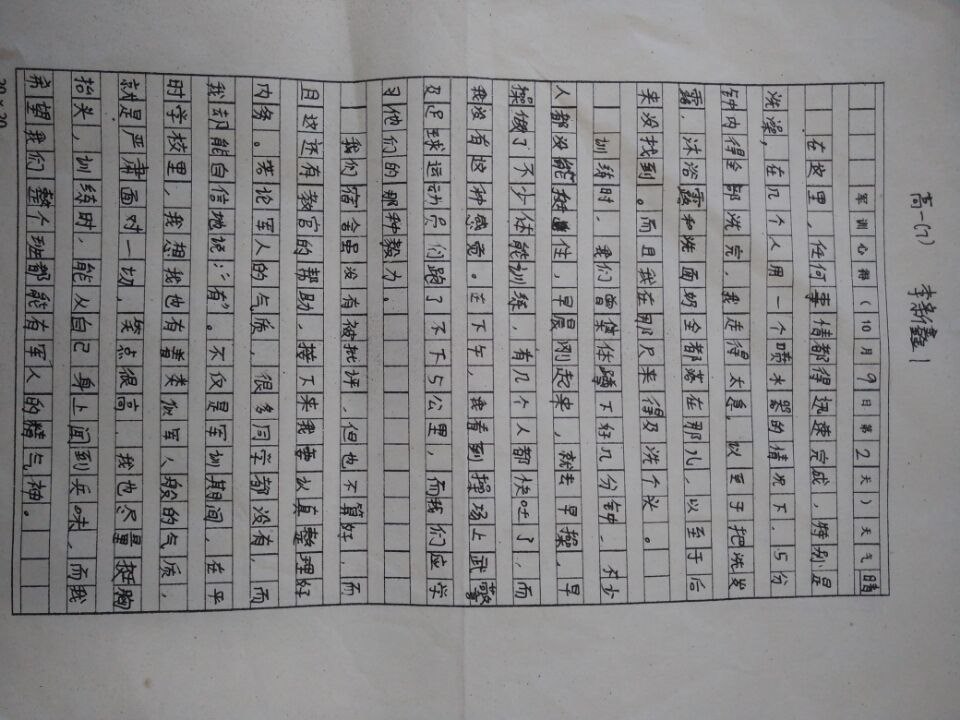 高一(7) 李新鑫1
军训心得(10月9日第2天)天气晴
在这里,任何事情都得迅速完成,特别是
洗澡,在几个人用一个喷水器的情况下,5分
钟内得全部洗完,我走得太急,以至于把洗发
露,沐浴露和洗面奶全都落在那儿,以至于后
来没找到。而且我在那只来得及洗个头。
训练时,我们曾集体蹲下好几分钟,不少
人都没能挨住,早晨刚起来,就去早操,早
操做了不少体能训练,有几个人都快吐了,而
我没有这种感觉。在下午,我看到操场上武警
及足球运动员们跑了不下5公里,而我们应学
习他们的那种毅力。
我们宿舍虽没有被批评,但也不算好,而
且这还有教官的帮助,接下来我要认真整理好
内务。若论军人的气质,很多同学都没有,而
我却能自信地说:“有”。不仅是军训期间,在平
时学校里,我想我也有着类似军人般的气质,
就是严肃面对一切,笑点很高,我也尽量挺胸
抬头,训练时,能从自己身上闻到兵味,而我
希望我们整个班都能有军人的精气神。
20×20